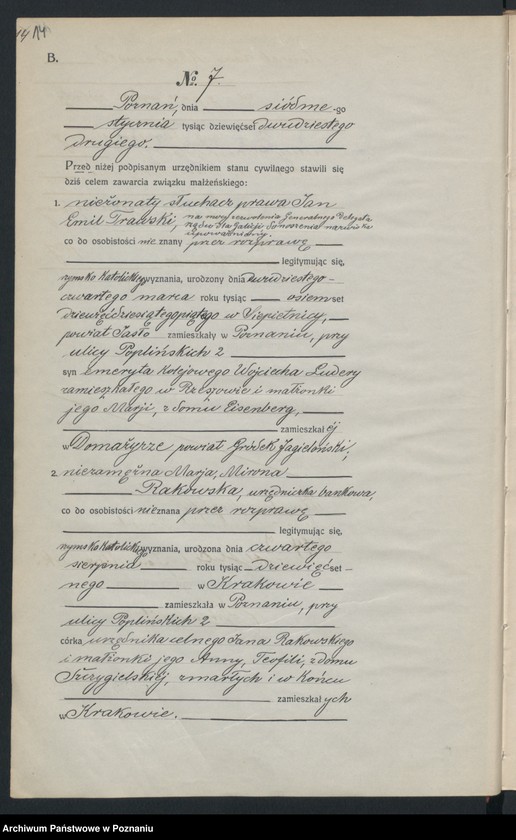 14 14
B.
No. 7.
Poznań, dnia siódme-go
stycznia tysiąc dziewięćset dwudziestego
drugiego.
Przed niżej podpisanym urzędnikiem stanu cywilnego stawili się
dziś celem zawarcia związku małżeńskiego:
1. nieżonaty słuchacz prawa Jan
Emil Trawski, na mocy zezwolenia Generalnego Delegata
Rządu dla Galicji do noszenia nazwiska
upoważniony.
co do osobistości nieznany przez rozprawę
legitymując się,
rzymsko katolickiego wyznania, urodzony dnia dwudziestego-
czwartego marca roku tysiąc osiemset
dziewięćdziesiątegopiątego w Siepietnicy,
powiat Jasło zamieszkały w Poznaniu, przy
ulicy Poplińskich 2
syn emeryta kolejowego Wojciecha Ludery
zamieszkałego w Rzeszowie i małżonki
jego Marji, z domu Eisenberg,
zamieszkałej
w Domażyrze powiat Gródek Jagieloński;
2. niezamężna Marja, Mirona
Rakowska, urzędniczka bankowa,
co do osobistości nieznana przez rozprawę
legitymując się,
rzymsko katolickiego wyznania, urodzona dnia czwartego
sierpnia roku tysiąc dziewięćset-
nego w Krakowie
zamieszkała w Poznaniu, przy
ulicy Poplińskich 2
córka urzędnika celnego Jana Rakowskiego
i małżonki jego Anny, Teofili, z domu
zmarłych i w końcu
zamieszkałych
w Krakowie.
Archiwum Państwowe w Poznaniu